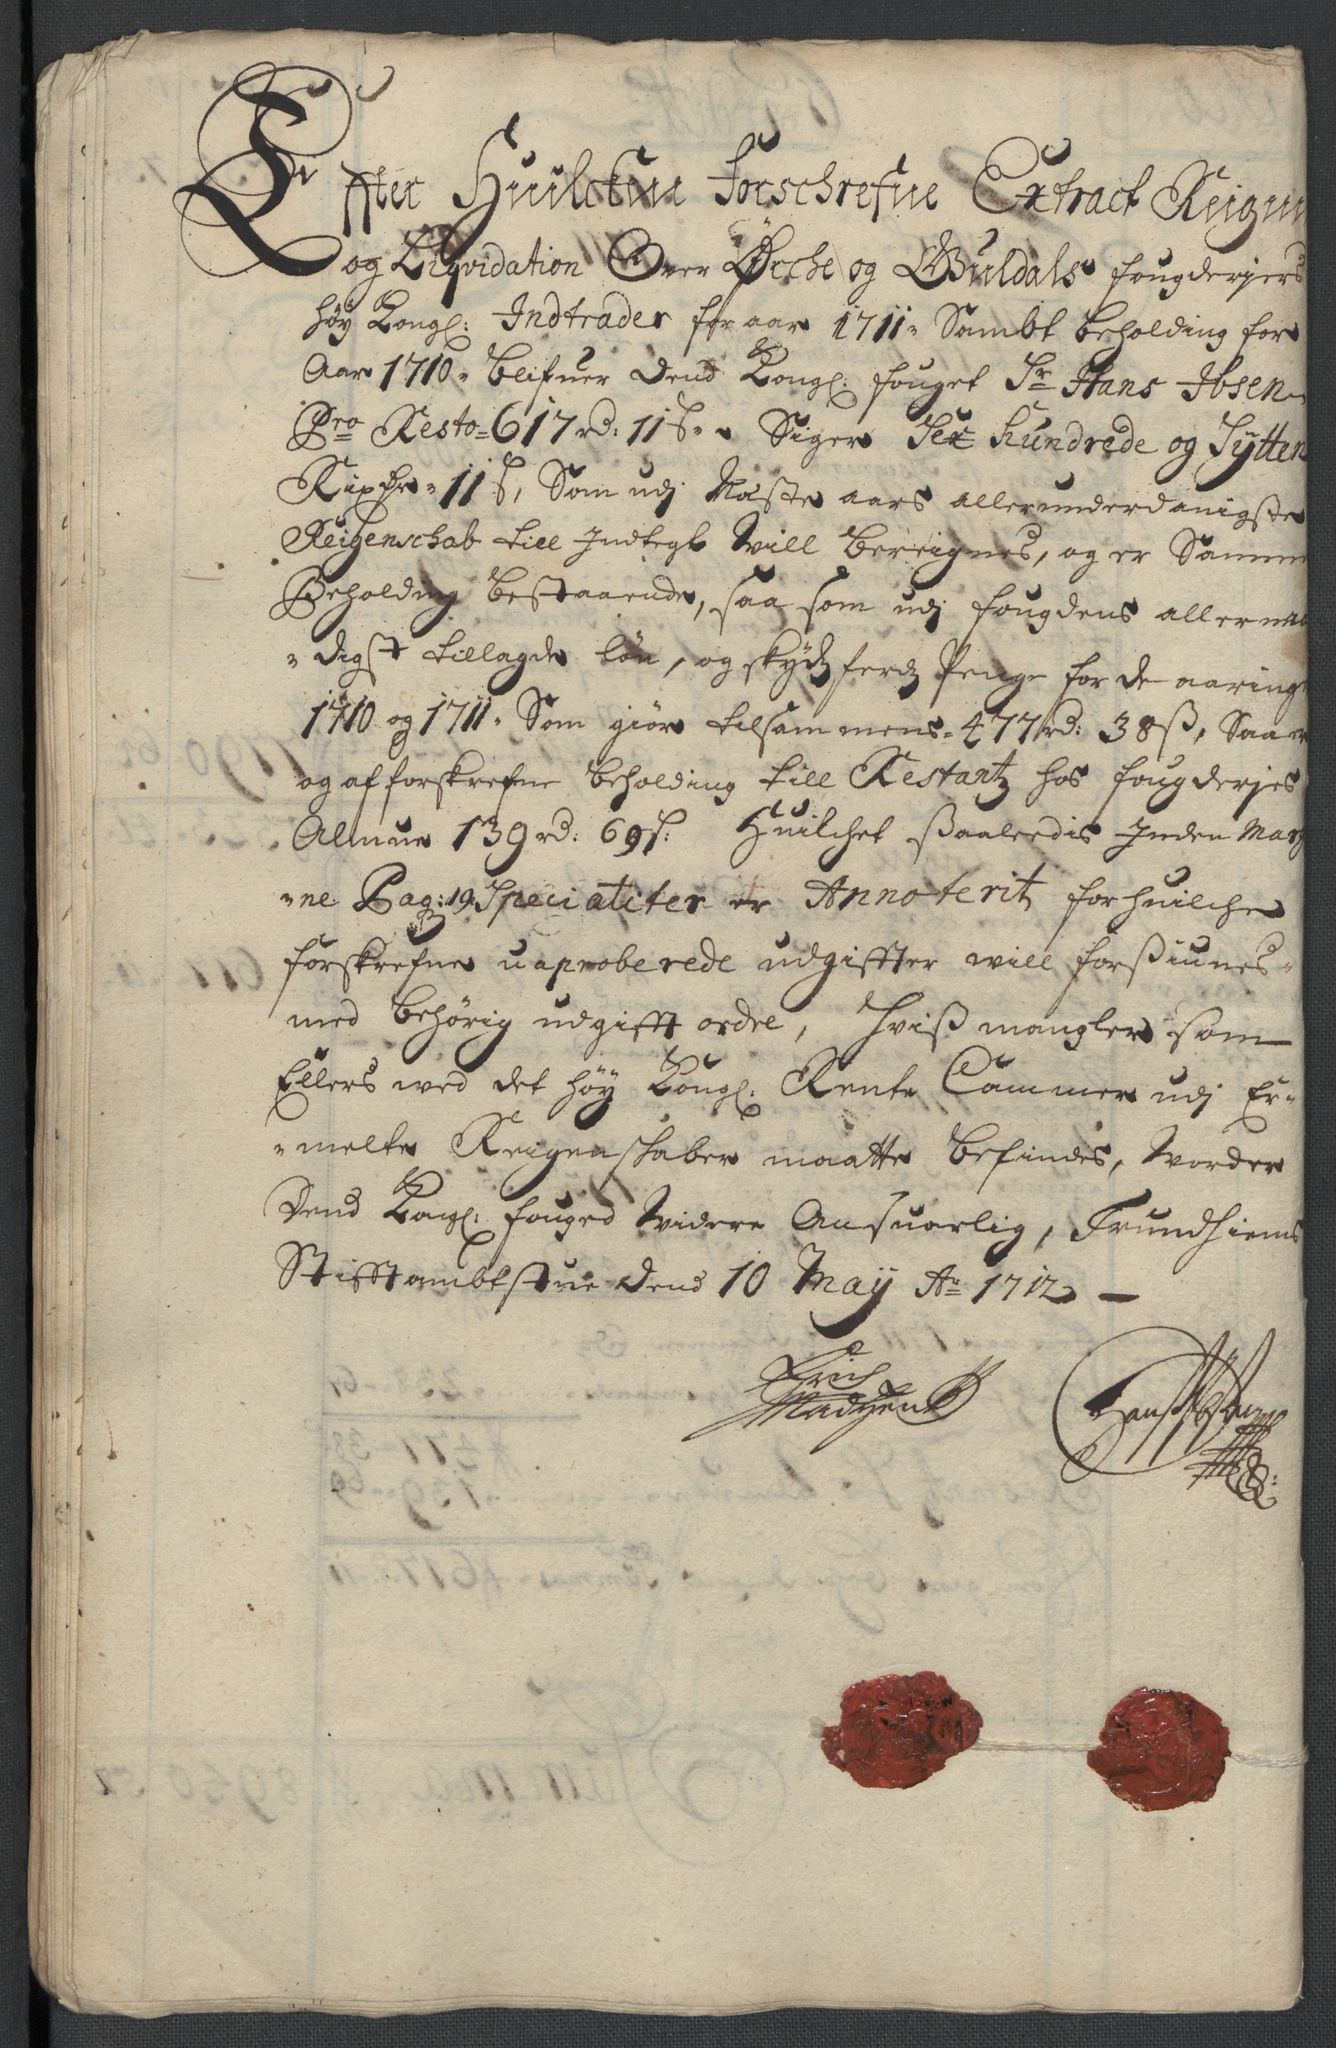 Effter Huilcken Forschrefne Extract Reign
og Liqvidation Over Ørche og Guldals fougderjers
høy Kongl: Indtrader for aar 1711 Sambt beholding for
Aar 1710 blifuer Dend Kongl: fouget Sr Hans Ibsen
Pro Resto 617 rd: 11 ß Siger Sex hundrede og Sytten
Rixdr 11 ß, Som udj Næste aars allerunderdanigste
Reigenschab till Indtegt Will bereignes, og er Samme
Beholding bestaaende, saa som udj fougdens allernaa
digst tillagde løn, og skydtzferdtz Penge for de aaringer
1710 og 1711 Som giør tilsammens 477 rd: 38 ß, Saa er
og af forskrefne beholding till Restantz hos fougderjes
Almue 139 rd: 69 ß: Huilchet ßaaleedis Inden Marg
ne Pag: 19 Specialiter er Annoterit for huilche
forskrefne uaproberede udgiffter will forßiunes
med behørig udgifft ordre, Hviß mangler som
Ellers wed det høy Kongl: Rente Cammer udj Er
melte Reigenskaber maatte befindes, Worder
Dend Kongl: fouged Widere Ansuarlig, Trundhiems
Stifftambtstue dend 10 May Ao 1712
Erich
Madtzen
Hans Ibsen